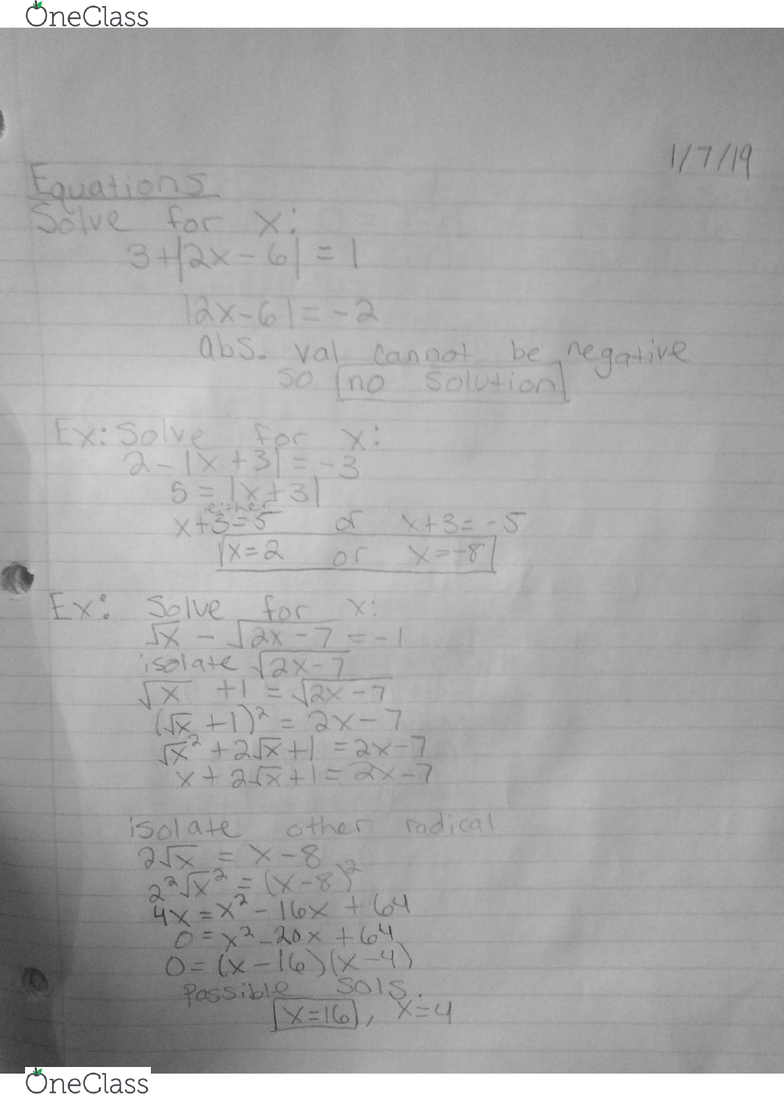 OneClass
1/7/19
Equations
Solve for x:
3+|2x-6| = 1
|2x-6| = -2
abs. val cannot be negative
so no solution
Ex: Solve for x:
2-|x+3| = -3
5 = |x+3|
either
x+3=5 or x+3=-5
x=2 or x=-8
Ex: Solve for x:
√x - √2x-7 = -1
isolate √2x-7
√x +1 = √2x-7
(√x +1)² = 2x-7
√x² + 2√x + 1 = 2x-7
x + 2√x + 1 = 2x-7
isolate other radical
2√x = x-8
2²√x² = (x-8)²
4x = x² - 16x + 64
0 = x² - 20x + 64
0 = (x-16)(x-4)
possible sols.
x=16, x=4
OneClass